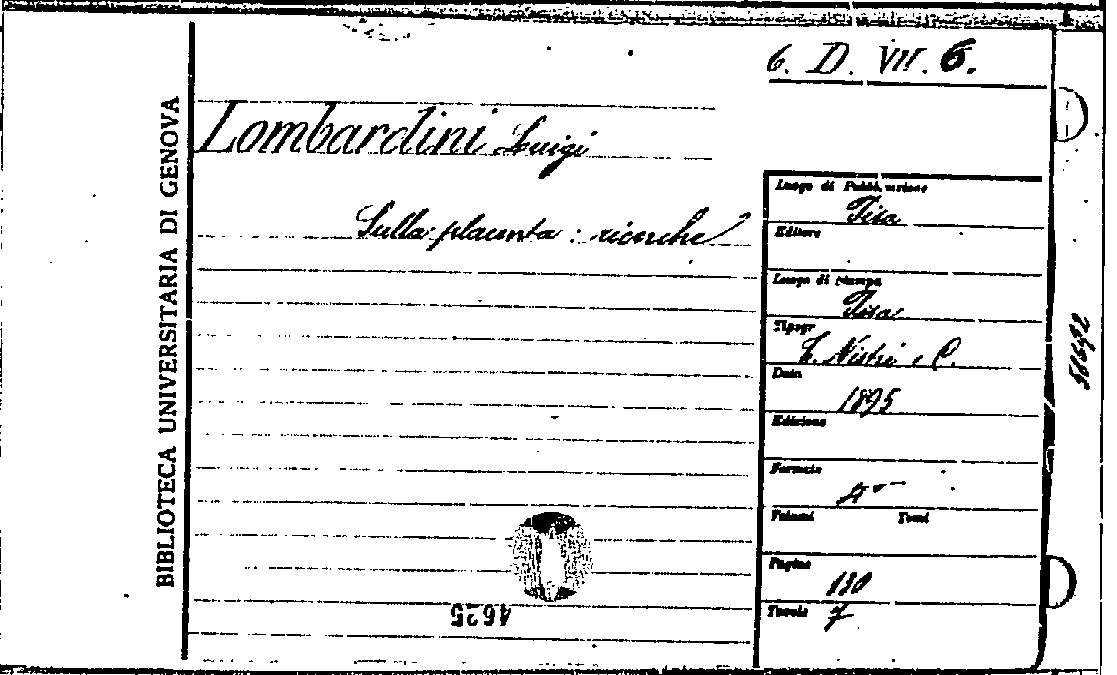 6. D. VII. 6.
BIBLIOTECA UNIVERSITARIA DI GENOVA
Lombardini Luigi
Sulla placenta : ricerche
Luogo di Pubblicazione
Pisa
Editore
Luogo di Stampa
Pisa
Tipogr
F. Nistri e C.
Data
1895
Edizione
Formato
4°
Volumi Tomi
Pagine
130
Tavole 7
4625